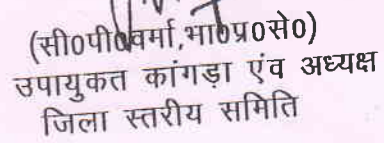 (सी०पी०वर्मा,भा०प्र०से०)
उपायुकत कांगड़ा एंव अध्यक्ष
जिला स्तरीय समिति